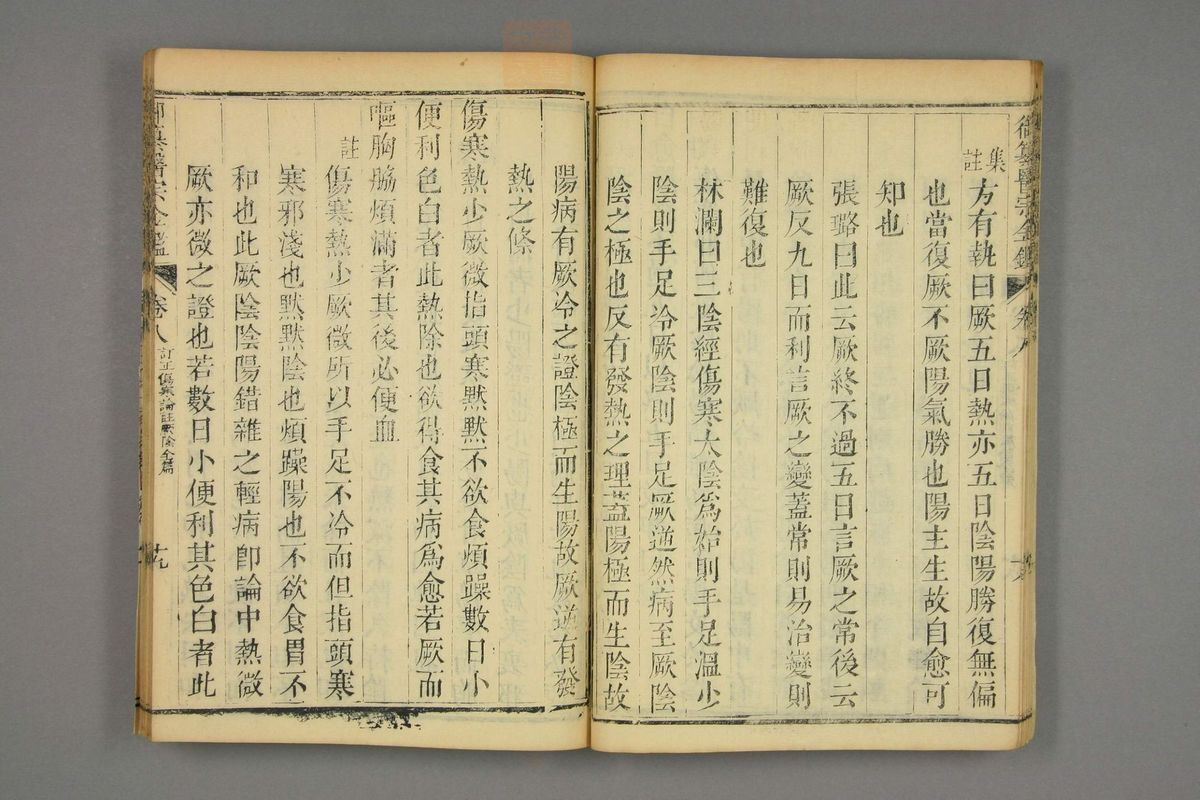 御纂醫宗全鑑
卷八
集註
方有執曰厥五日熱亦五日陰陽勝復無偏
也當復厥不厥陽氣勝也陽主生故自愈可
知也
張璐曰此云厥終不過五日言厥之常後云
厥反九日而利言厥之變蓋常則易治變則
難復也
林瀾曰三陰經傷寒太陰爲始則手足溫少
陰則手足冷厥陰則手足厥逆然病至厥陰
陰之極也反有發熱之理蓋陽極而生陰故
陽病有厥冷之證陰極而生陽故厥逆有發
熱之條
傷寒熱少厥微指頭寒默默不欲食煩躁數日小
便利色白者此熱除也欲得食其病爲愈若厥而
嘔胸脇煩滿者其後必便血
註
傷寒熱少厥微所以手足不冷而但指頭寒
寒邪淺也默默陰也煩躁陽也不欲食胃不
和也此厥陰陰陽錯雜之輕病卽論中熱微
厥亦微之證也若數日小便利其色白者此
御纂醫宗金鑑
卷八
訂正傷寒論註厥陰全篇
廿九